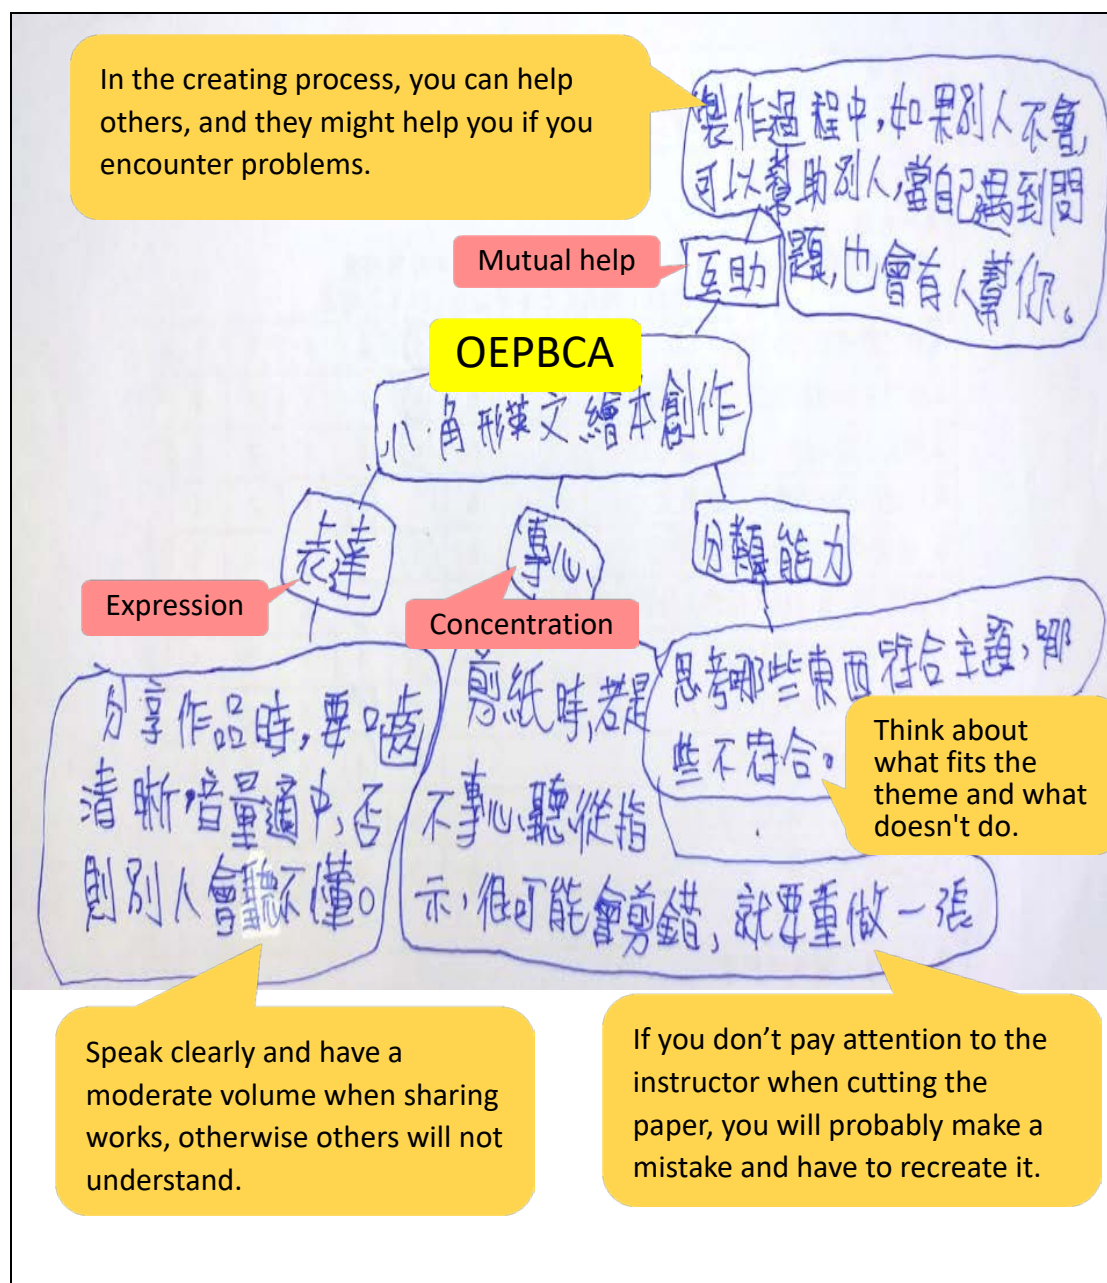 In the creating process, you can help
others, and they might help you if you
encounter problems.
製作過程中,如果別人不會,
可以幫助別人,當自己遇到問
題,也會有人幫你。
Mutual help
互助
OEPBCA
八角形英文繪本創作
表達
專心
分類能力
Expression
Concentration
分享作品時,要口齒
清晰,音量適中,否
則別人會聽不懂。
剪紙時,若是
不專心聽從指
示,很可能會剪錯,就要重做一張
思考哪些東西符合主題,哪
些不符合。
Think about
what fits the
theme and what
doesn't do.
Speak clearly and have a
moderate volume when sharing
works, otherwise others will not
understand.
If you don’t pay attention to the
instructor when cutting the
paper, you will probably make a
mistake and have to recreate it.